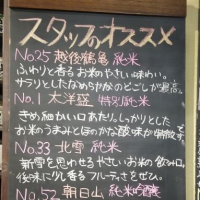 スタッフのオススメ
No.25 越後鶴亀 純米
ふわりと香るお米のやさしい味わい。
サラリとしたなめらかなのどごしが最高。
No.1 大洋盛 特別純米
きめ細かい口あたり。しっかりとした
お米のうまみとほのかな酸味が特徴です
No.33 北雪 純米
新雪を思わせるやさしいお米の飲み口。
後味に少し香るフルーティさをぜひ。
No.52 朝日山 純米吟醸